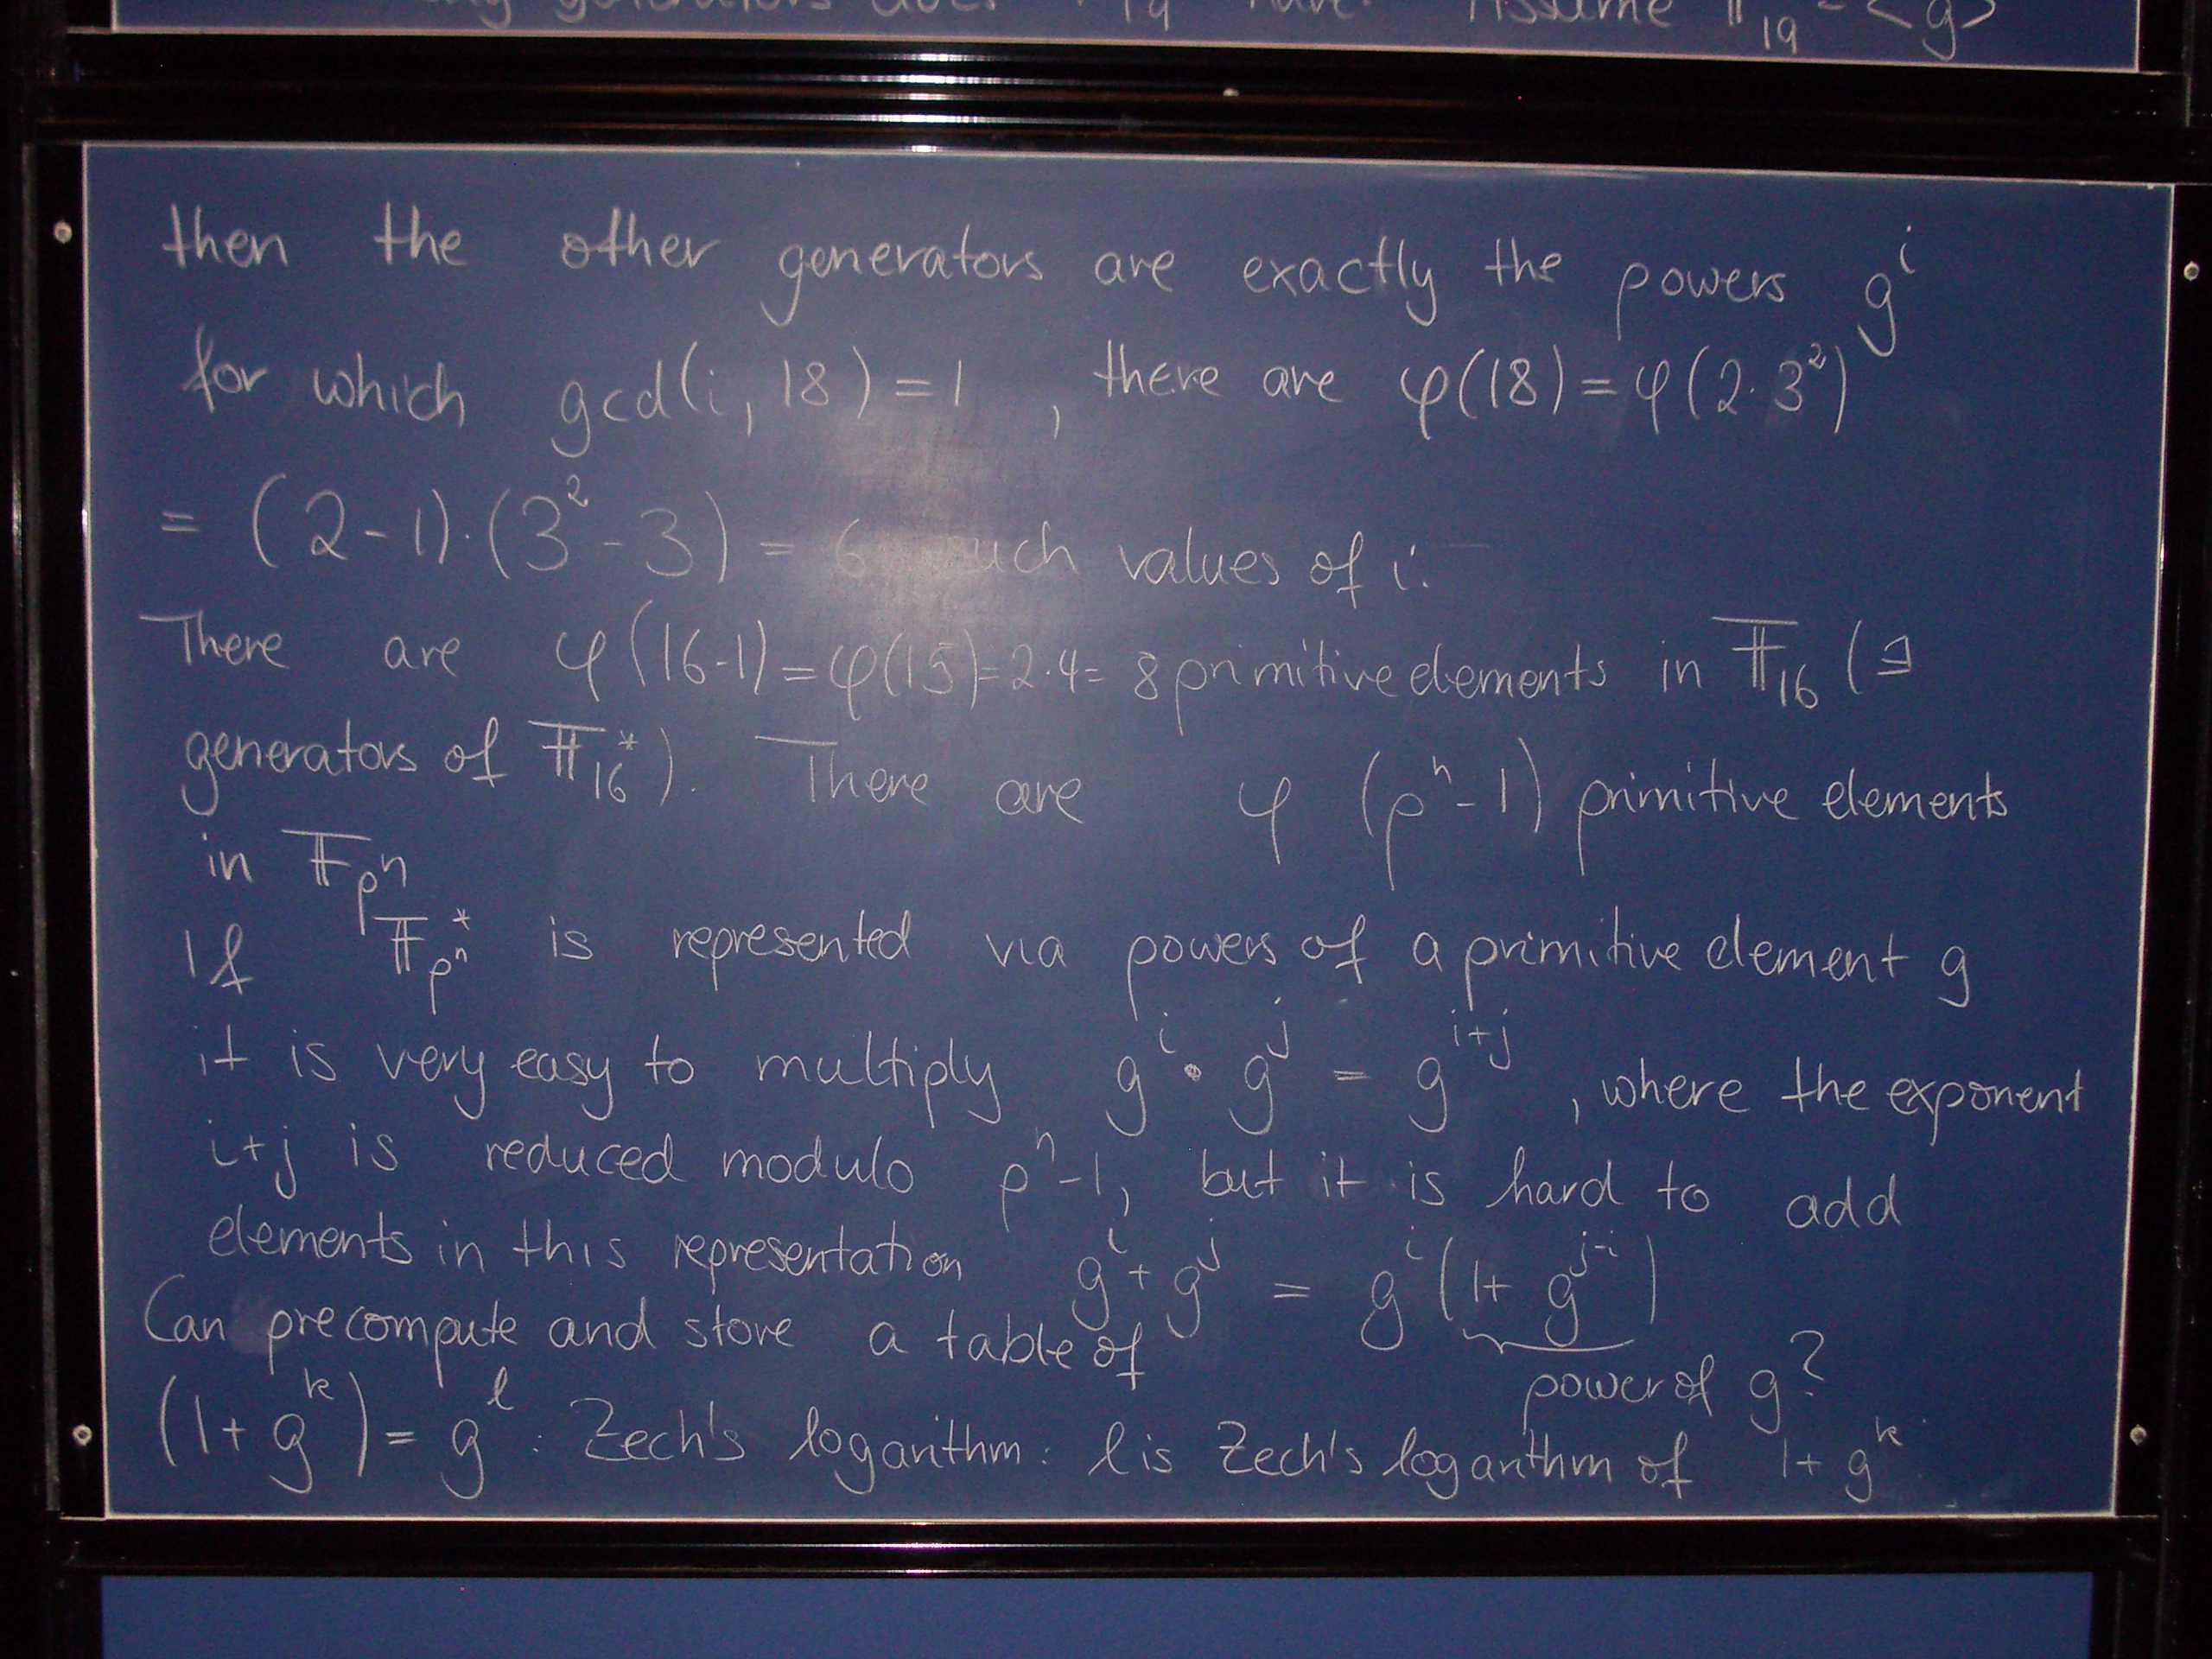 generators does 19 have. Assume 𝔽19 = <g>
then the other generators are exactly the powers g^i
for which gcd(i, 18) = 1 , there are φ(18) = φ(2·3²)
= (2-1)·(3²-3) = 6 such values of i.
There are φ(16-1) = φ(15) = 2·4 = 8 primitive elements in 𝔽16 (≙
generators of 𝔽16*). There are φ (p^n-1) primitive elements
in 𝔽p^n
If 𝔽p^n* is represented via powers of a primitive element g
it is very easy to multiply g^i • g^j = g^(i+j) , where the exponent
i+j is reduced modulo p^n-1, but it is hard to add
elements in this representation g^i + g^j = g^i (1+ g^(j-i))
Can precompute and store a table of
power of g?
(1+ g^k) = g^l : Zech's logarithm: l is Zech's logarithm of 1+ g^k.